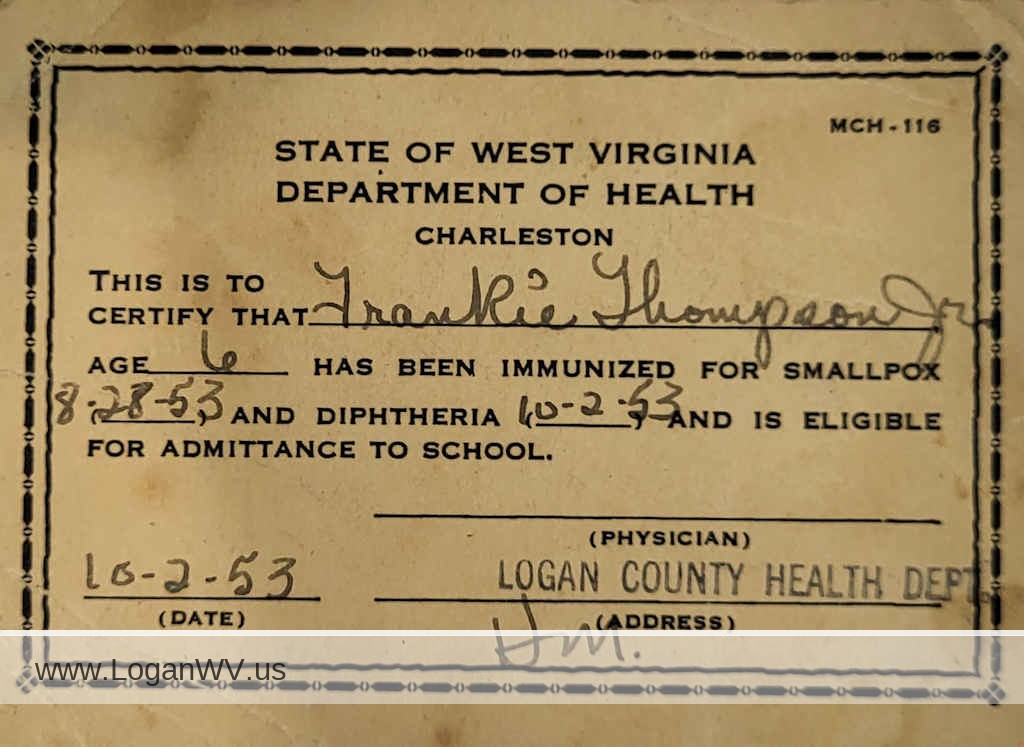 MCH-116
STATE OF WEST VIRGINIA
DEPARTMENT OF HEALTH
CHARLESTON
THIS IS TO
CERTIFY THAT Frankie Thompson Jr.
AGE 6 HAS BEEN IMMUNIZED FOR SMALLPOX
(8-28-53) AND DIPHTHERIA (10-2-53) AND IS ELIGIBLE
FOR ADMITTANCE TO SCHOOL.
(PHYSICIAN)
10-2-53 LOGAN COUNTY HEALTH DEPT.
(DATE) (ADDRESS)
Hm.
www.LoganWV.us